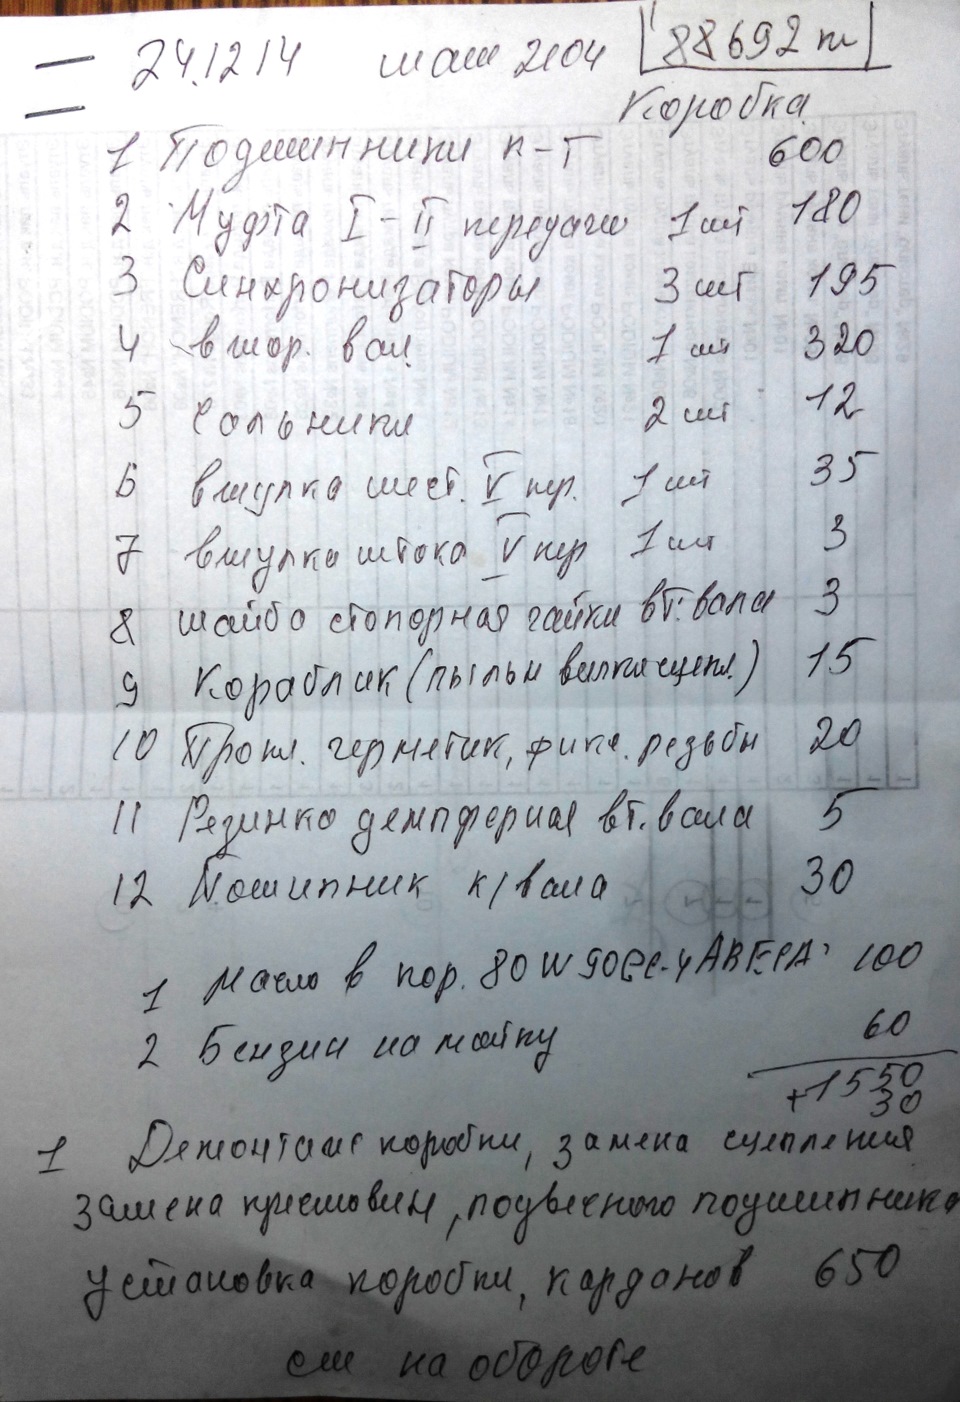 24.12 14 маш 2104 88692 км
Коробка
1 Подшинники к-т 600
2 Муфта I-II передачи 1 шт 180
3 Синхронизаторы 3 шт 195
4 втор. вал 1 шт 320
5 Сальники 2 шт 12
6 втулка шест. V пер. 1 шт 35
7 втулка штока V пер 1 шт 3
8 шайба стопорная гайки вт. вала 3
9 Кораблик (пыльн вилки сцепл.) 15
10 Прокл. герметик, фикс. резьбы 20
11 Резинка демпферная вт. вала 5
12 Пошипник к/вала 30
1 Масло в кор. 80W90 100
2 Бензин на мойку 60
1550
+ 30
1 Демонтаж коробки, замена сцепления
замена крестовин, подвесного подшипника
установка коробки, карданов 650
см на обороте